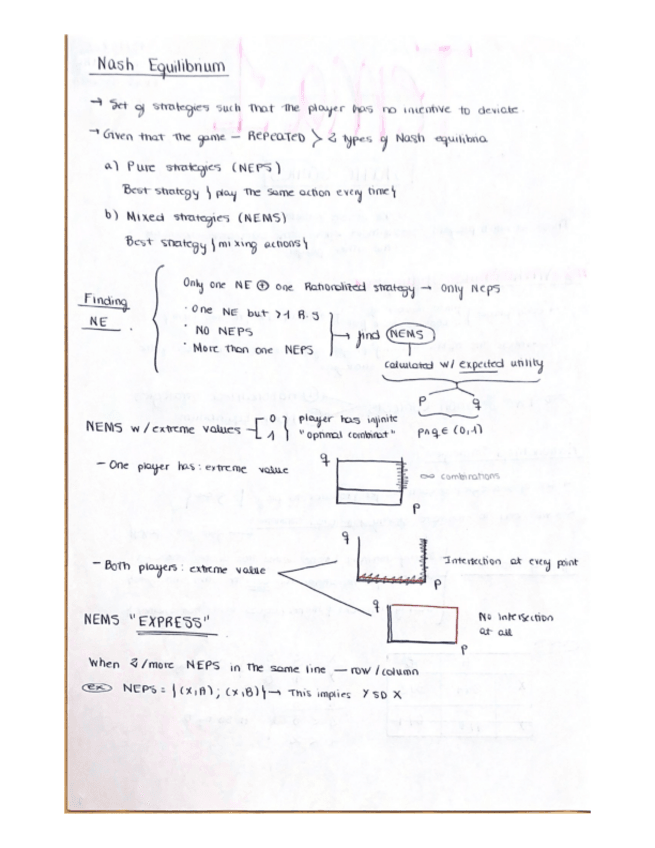 Nash Equilibrium
→ Set of strategies such that the player has no incentive to deviate.
→ Given that the game — REPEATED > 2 types of Nash equilibria
a) Pure strategies (NEPS)
Best strategy { play the same action every time}
b) Mixed strategies (NEMS)
Best strategy { mixing actions}
Finding NE.
Only one NE ⊕ one Rationalized strategy → only NEPS
· One NE but >1 R.S
· NO NEPS
· More than one NEPS
→ find NEMS
calculated w/ expected utility
p q
p ∧ q ∈ (0,1)
NEMS w/ extreme values — [ 0 1 } player has infinite
"optimal combinat"
— One player has: extreme value
q
p
∞ combinations
— Both players: extreme value
q
p
Intersection at every point
q
p
No intersection
at all
NEMS "EXPRESS"
When 2/more NEPS in the same line — row/column
ex NEPS = {(X,A); (X,B)} → This implies Y SD X